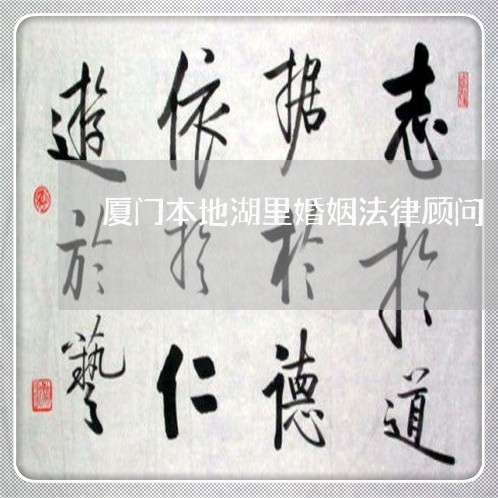 志於道
据於德
依於仁
遊於藝
厦门本地湖里婚姻法律顾问